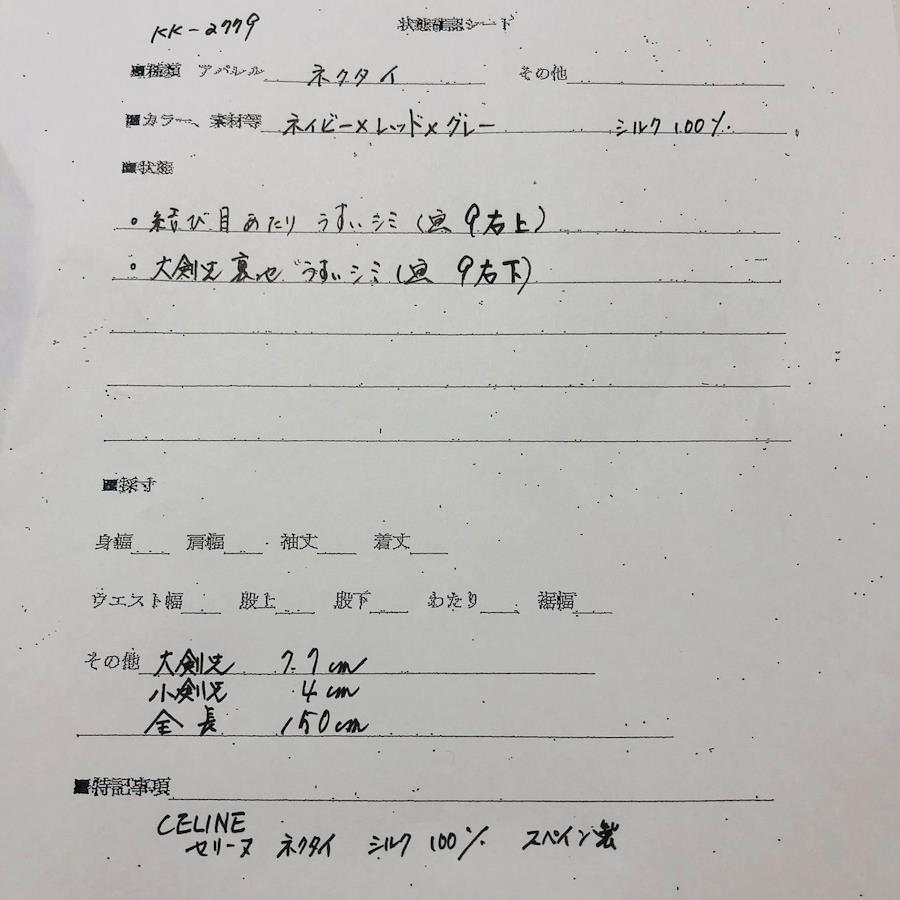 KK-2779
状態確認シート
■種類 アパレル ネクタイ その他
■カラー、素材等 ネイビー×レッド×グレー シルク100%
■状態
・結び目あたり うすいシミ(画 9右上)
・大剣先裏 うすいシミ(画 9右下)
■採寸
身幅 肩幅 袖丈 着丈
ウエスト幅 股上 股下 わたり 裾幅
その他 大剣先 7.7cm
小剣先 4cm
全長 150cm
■特記事項
CELINE
セリーヌ ネクタイ シルク100% スペイン製